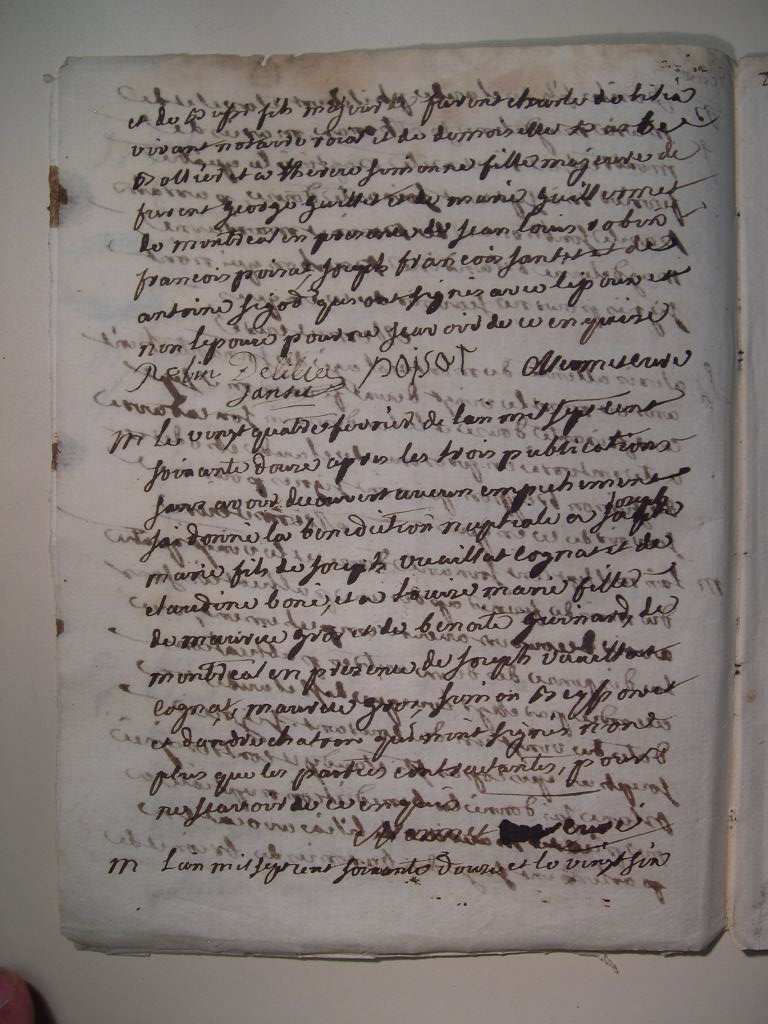 et de fils majeur de furent charle de lilia
vivant notaire roial et de demoiselle
ollier et a therese simonne fille majeure de
furent george guillet et de marie guillermet
de montreal en presence de jean louis robin
francois poisat, joseph francois santet et de
antoine sigod qui ont signés avec lepoux et
non lepouse pour ne scavoir de ce enquise
Robin Delilia poisat
santet
M le vingt quatre fevrier de lan mil sept cent
soixante douze apres les trois publications
sans avoir decouvert aucun empechement
jai donné la benediction nuptiale a joseph
marie fils de joseph vuaillat cognat et de
claudine bone, et a louise marie fille
de maurice gros et de benoite guinard, de
montreal en presence de joseph vuaillat
cognat, maurice gros, simon et
et dandré chatron qui nont signés non
plus que les parties contractantes, pour
ne scavoir de ce enquis
curé
M Lan mil sept cent soixante douze et le vingt six